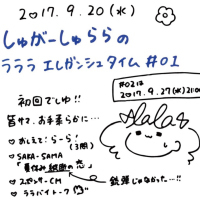 2017.9.20(水)
しゅがーしゅららの
ラララ エレガンシュタイム #01
#02は
2017.9.27(水)21:00
初回でしゅ!!
皆サマ、お手柔らかに…
♡おしえて!らーら!
(3問)
♡SAKA-SAMA
「夏休み絶滅の恋」
♡スポンサーCM
♡ララバイトーク
Lala
銃弾じゃなかった…!!